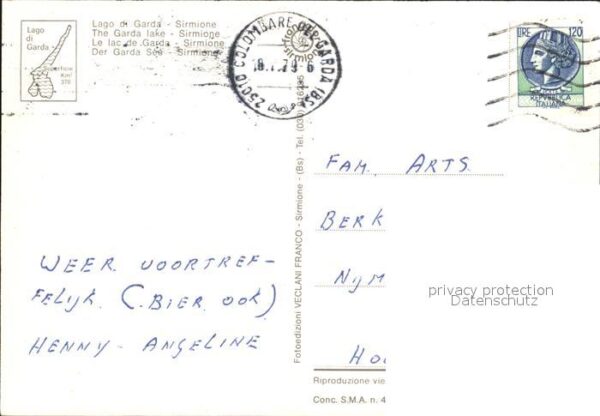 Lago
di
Garda
Superficie
Km²
370
Lago di Garda - Sirmione
The Garda lake - Sirmione
Le lac de Garda - Sirmione
Der Garda See - Sirmione
25010 COLOMBARE DEL GARDA (BS)
LIRE 120
REPUBBLICA
ITALIANA
Fotoedizioni VECLANI FRANCO - Sirmione - (Bs) - Tel. (030)
WEER VOORTREF-
FELIJK. (BIER OOK)
HENNY - ANGELINE
FAM. ARTS
BERK
NIJM
HO
privacy protection
Datenschutz
Riproduzione vie
Conc. S.M.A. n. 4